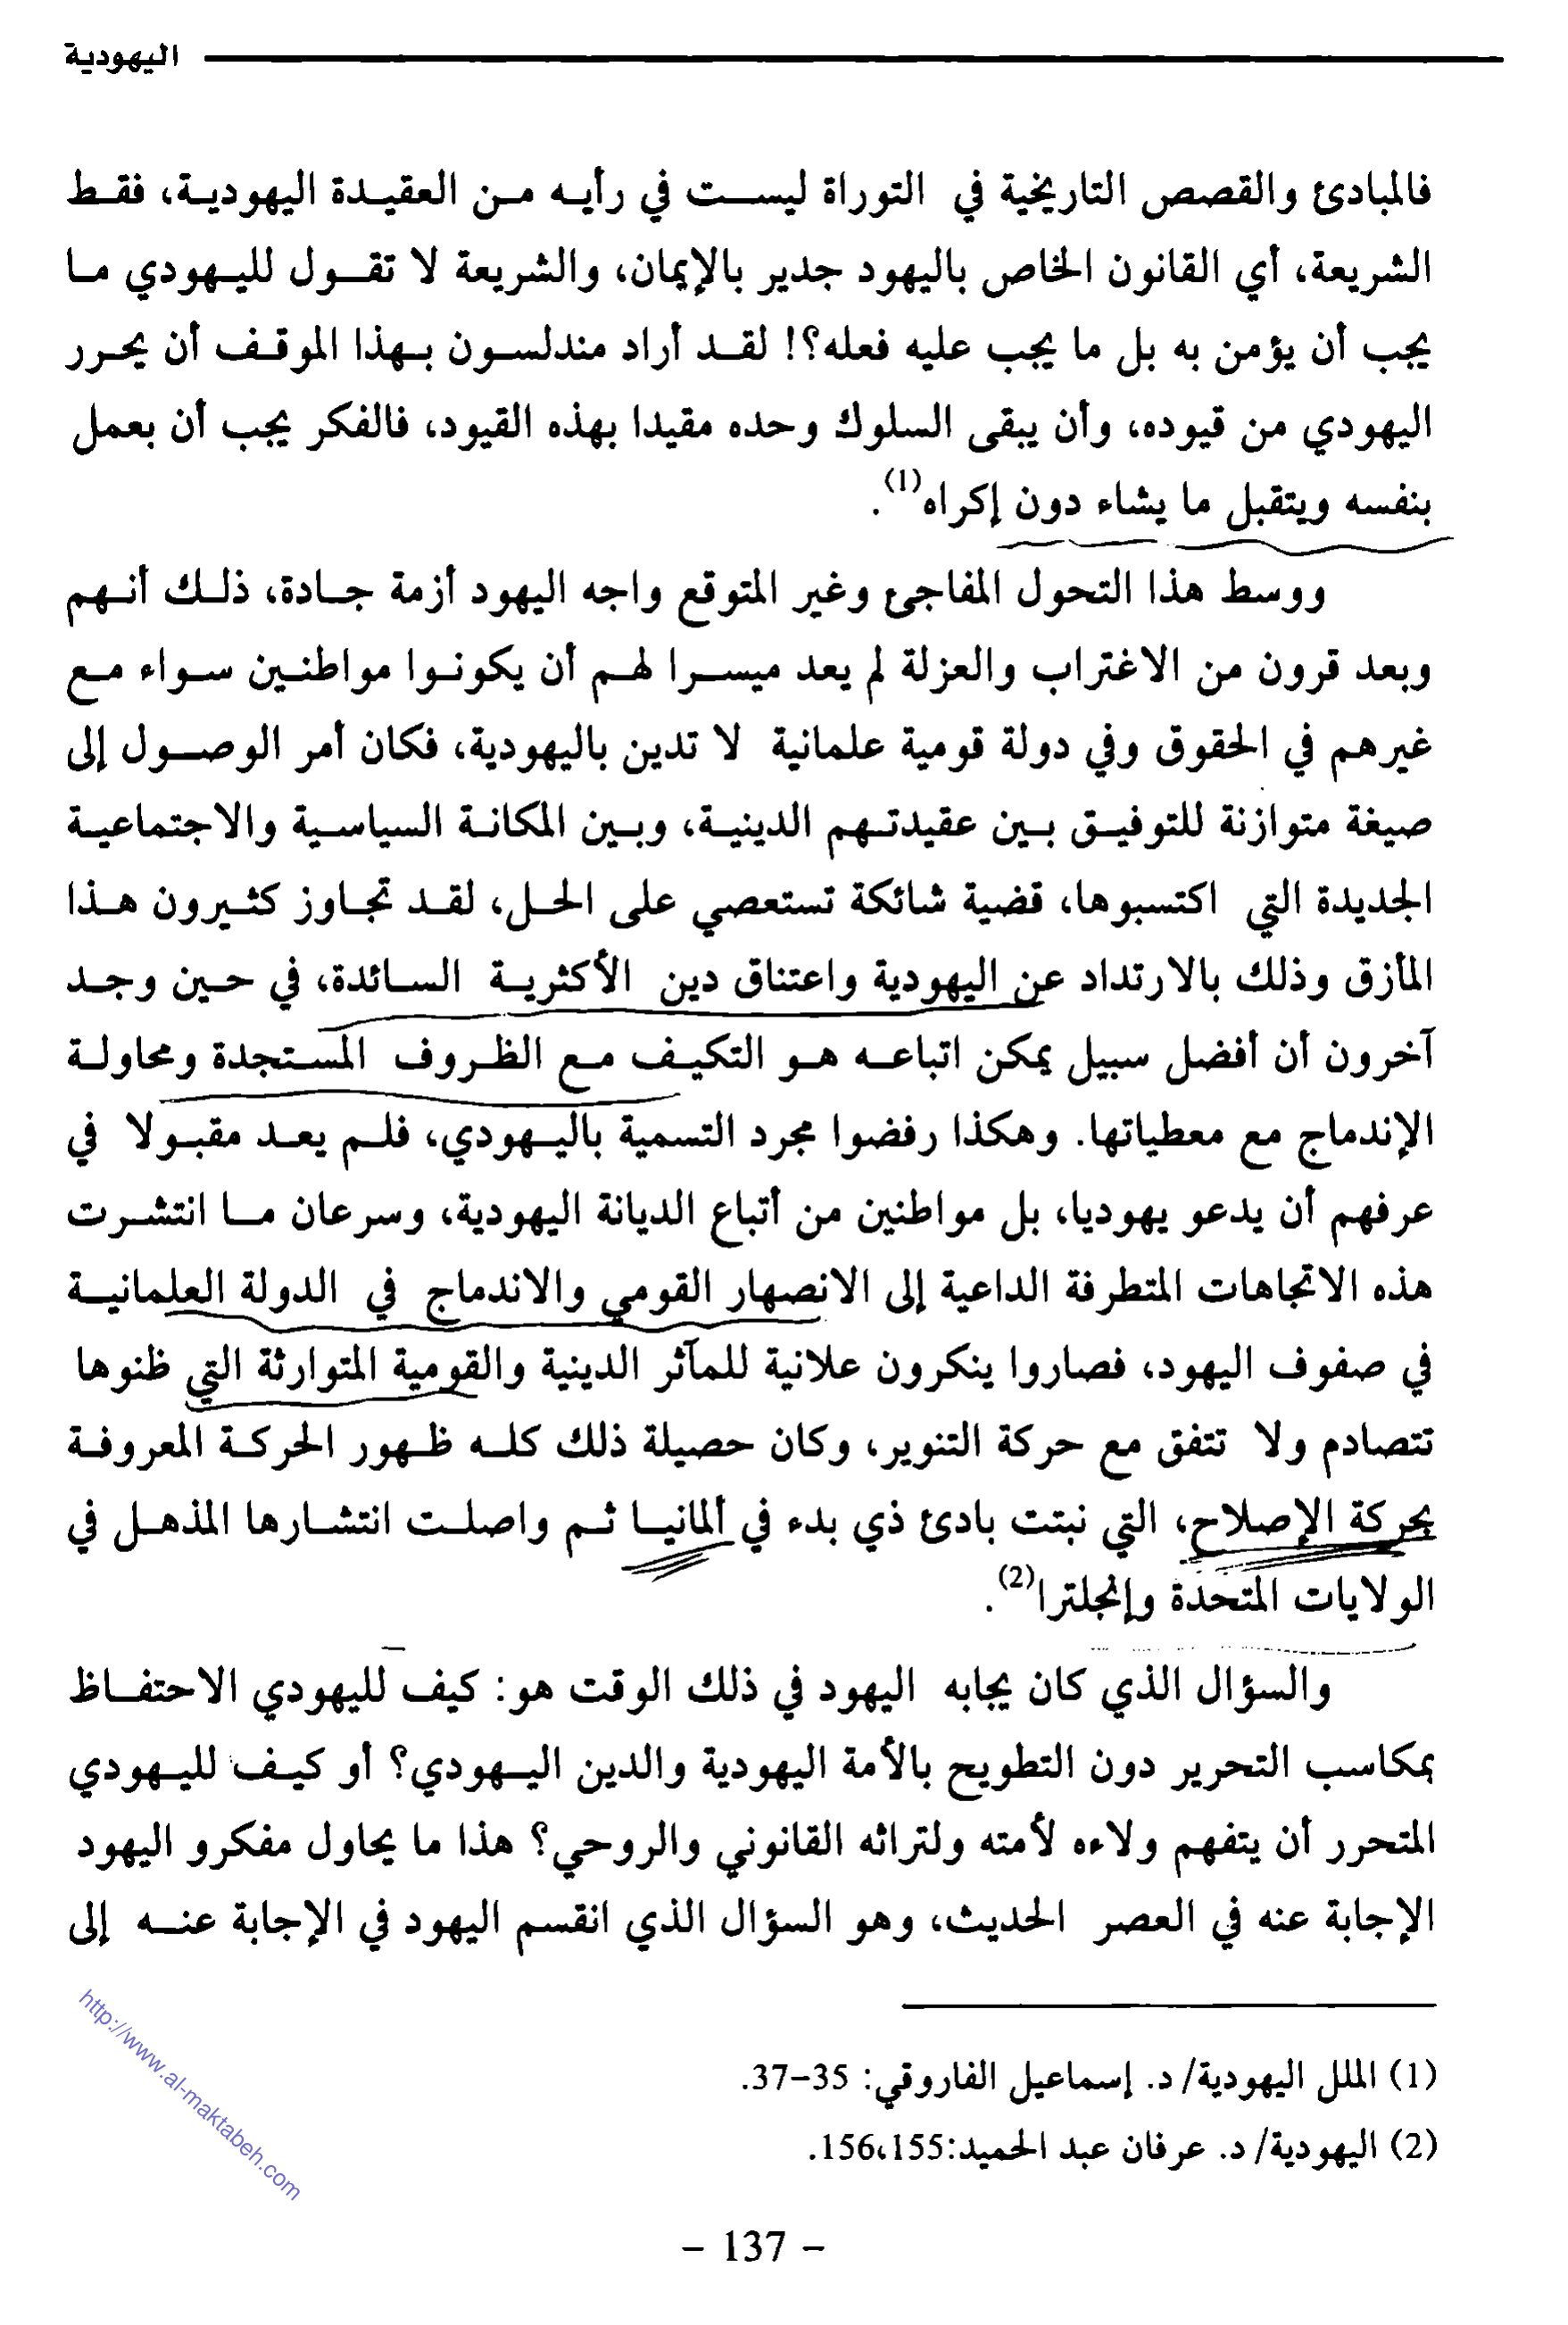 اليهودية
فالمبادئ والقصص التاريخية في التوراة ليست في رأيه من العقيدة اليهودية، فقط
الشريعة، أي القانون الخاص باليهود جدير بالإيمان، والشريعة لا تقول لليهودي ما
يجب أن يؤمن به بل ما يجب عليه فعله؟! لقد أراد مندلسون بهذا الموقف أن يحرر
اليهودي من قيوده، وأن يبقى السلوك وحده مقيدا بهذه القيود، فالفكر يجب أن بعمل
بنفسه ويتقبل ما يشاء دون إكراه(1).
ووسط هذا التحول المفاجئ وغير المتوقع واجه اليهود أزمة جادة، ذلك أنهم
وبعد قرون من الاغتراب والعزلة لم يعد ميسرا لهم أن يكونوا مواطنين سواء مع
غيرهم في الحقوق وفي دولة قومية علمانية لا تدين باليهودية، فكان أمر الوصول إلى
صيغة متوازنة للتوفيق بين عقيدتهم الدينية، وبين المكانة السياسية والاجتماعية
الجديدة التي اكتسبوها، قضية شائكة تستعصي على الحل، لقد تجاوز كثيرون هذا
المأزق وذلك بالارتداد عن اليهودية واعتناق دين الأكثرية السائدة، في حين وجد
آخرون أن أفضل سبيل يمكن اتباعه هو التكيف مع الظروف المستجدة ومحاولة
الإندماج مع معطياتها. وهكذا رفضوا مجرد التسمية باليهودي، فلم يعد مقبولا في
عرفهم أن يدعو يهوديا، بل مواطنين من أتباع الديانة اليهودية، وسرعان ما انتشرت
هذه الاتجاهات المتطرفة الداعية إلى الانصهار القومي والاندماج في الدولة العلمانية
في صفوف اليهود، فصاروا ينكرون علانية للمآثر الدينية والقومية المتوارثة التي ظنوها
تتصادم ولا تتفق مع حركة التنوير، وكان حصيلة ذلك كله ظهور الحركة المعروفة
بحركة الإصلاح، التي نبتت بادئ ذي بدء في ألمانيا ثم واصلت انتشارها المذهل في
الولايات المتحدة وإنجلترا(2).
والسؤال الذي كان يجابه اليهود في ذلك الوقت هو: كيف لليهودي الاحتفاظ
بمكاسب التحرير دون التطويح بالأمة اليهودية والدين اليهودي؟ أو كيف لليهودي
المتحرر أن يتفهم ولاءه لأمته ولتراثه القانوني والروحي؟ هذا ما يحاول مفكرو اليهود
الإجابة عنه في العصر الحديث، وهو السؤال الذي انقسم اليهود في الإجابة عنه إلى
(1) الملل اليهودية/ د. إسماعيل الفاروقي: 35-37.
(2) اليهودية/ د. عرفان عبد الحميد:155،156.
http://www.al-maktabeh.com
- 137 -